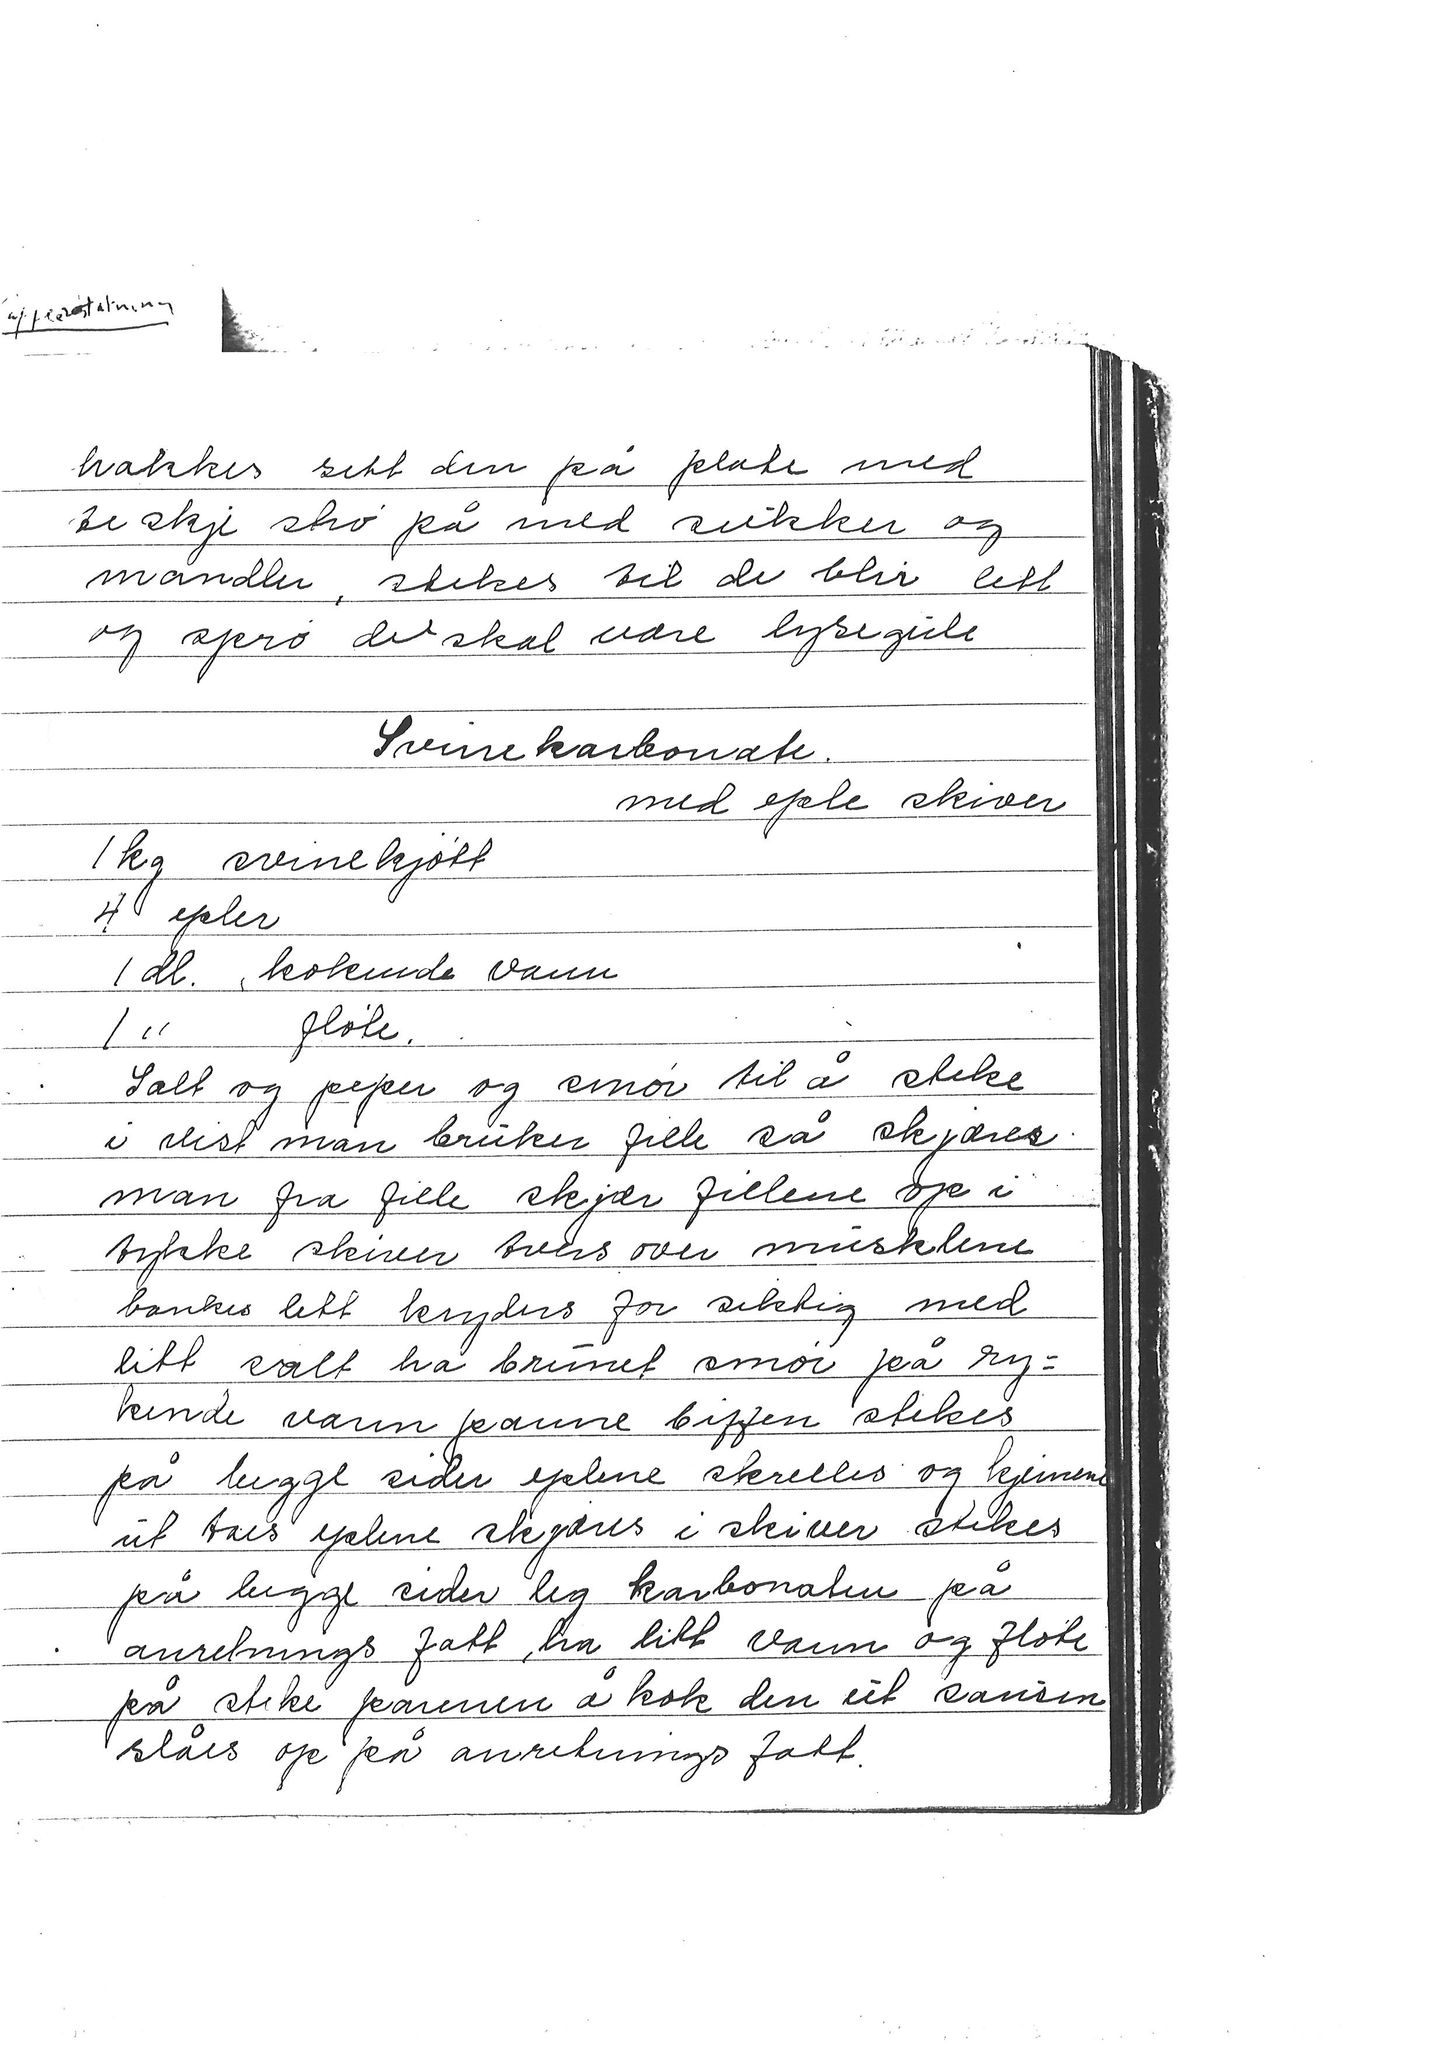 hakkes sett den på plate med
te skje strø på med sukker og
mandler, stekes til de blir lett
og sprø de skal være lysegule
Svinekarbonate.
med eple skiver
1 kg svinekjøtt
4 epler
1 dl. kokende vann
1 " fløte.
Salt og peper og smør til å steke
i vist man bruker fille så skjæres
man fra fille skjær fillene op i
tykke skiver tvers over musklene
bankes lett kryders for siktig med
litt salt ha brunet smør på ry=
kende varm panne biffen stekes
på begge sider eplene skrelles og kjernene
ut taes eplene skjæres i skiver stekes
på begge sider leg karbonaten på
anretnings fatt, ha litt vann og fløte
på steke pannen å kok den ut sausen
slåes op på anretnings fatt.